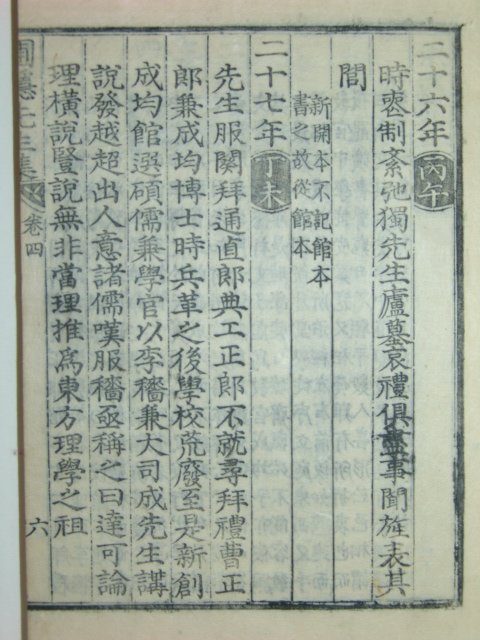 二十六年丙午
時喪制紊弛獨先生廬墓哀禮俱盡事聞旌表其
閭
新開本不記館本
書之故從館本
二十七年丁未
先生服闋拜通直郎典工正郎不就尋拜禮曹正
郎兼成均博士時兵革之後學校荒廢至是新創
成均館選碩儒兼學官以李穡兼大司成先生講
說發越超出人意諸儒嘆服穡亟稱之曰達可論
理橫說竪說無非當理推爲東方理學之祖
圃隱先生集
卷四
六